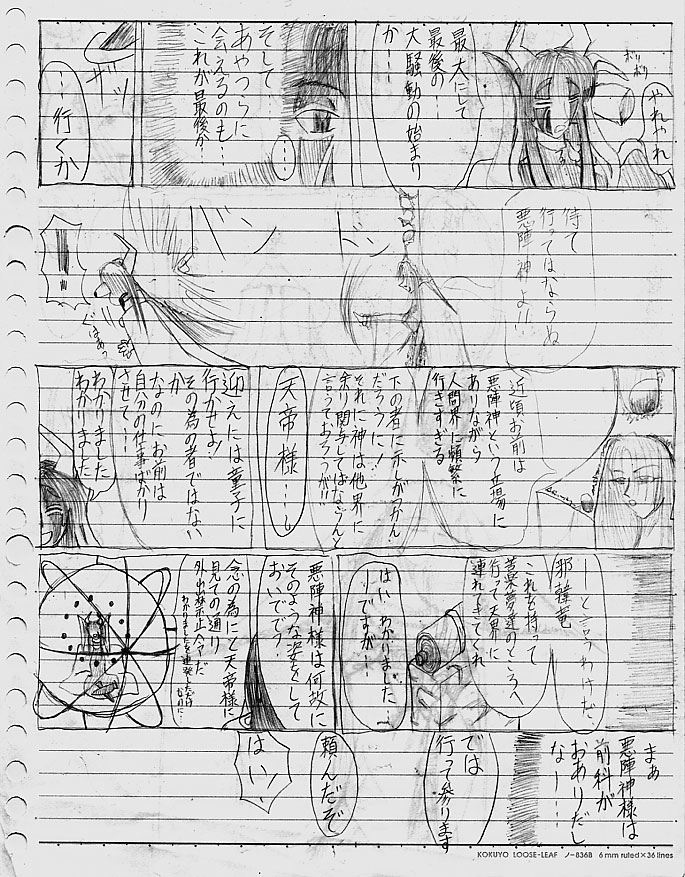 やれやれ
ポリポリ
最大にして
最後の
大騒動の始まり
か…
そして…
あやつらに
会えるのも…
これが最後か
…
ザッ
…行くか
待て
行ってはならぬ
悪陣神よ!!
ぐはぁっ
近頃お前は
悪陣神という立場に
ありながら
人間界に頻繁に
行きすぎる
下の者に示しがつかん
だろうに!
それに神は他界に
余り関与してはならんと
言っておろうが!!
天帝様…
迎えには童子に
行かせよ!
その為の者ではない
か
なのにお前は
自分の仕事ばかり
させて…
わかりました
わかりました
―と言うわけだ、
邪韓竜
これを持って
苦楽夢達のところへ
行って天界に
連れてきてくれ
はい、わかりました…
…ですが…
悪陣神様は何故に
そのような姿をして
おいでで?
念の為にと天帝様に
見ての通り
外出禁止令だ
わかりましたを連発しただけ
なのに
まぁ
悪陣神様は
前科が
おありだし
なー…
では
行って参ります
頼んだぞ
はいっ
KOKUYO LOOSE-LEAF ノ-836B 6mm ruled×36 lines